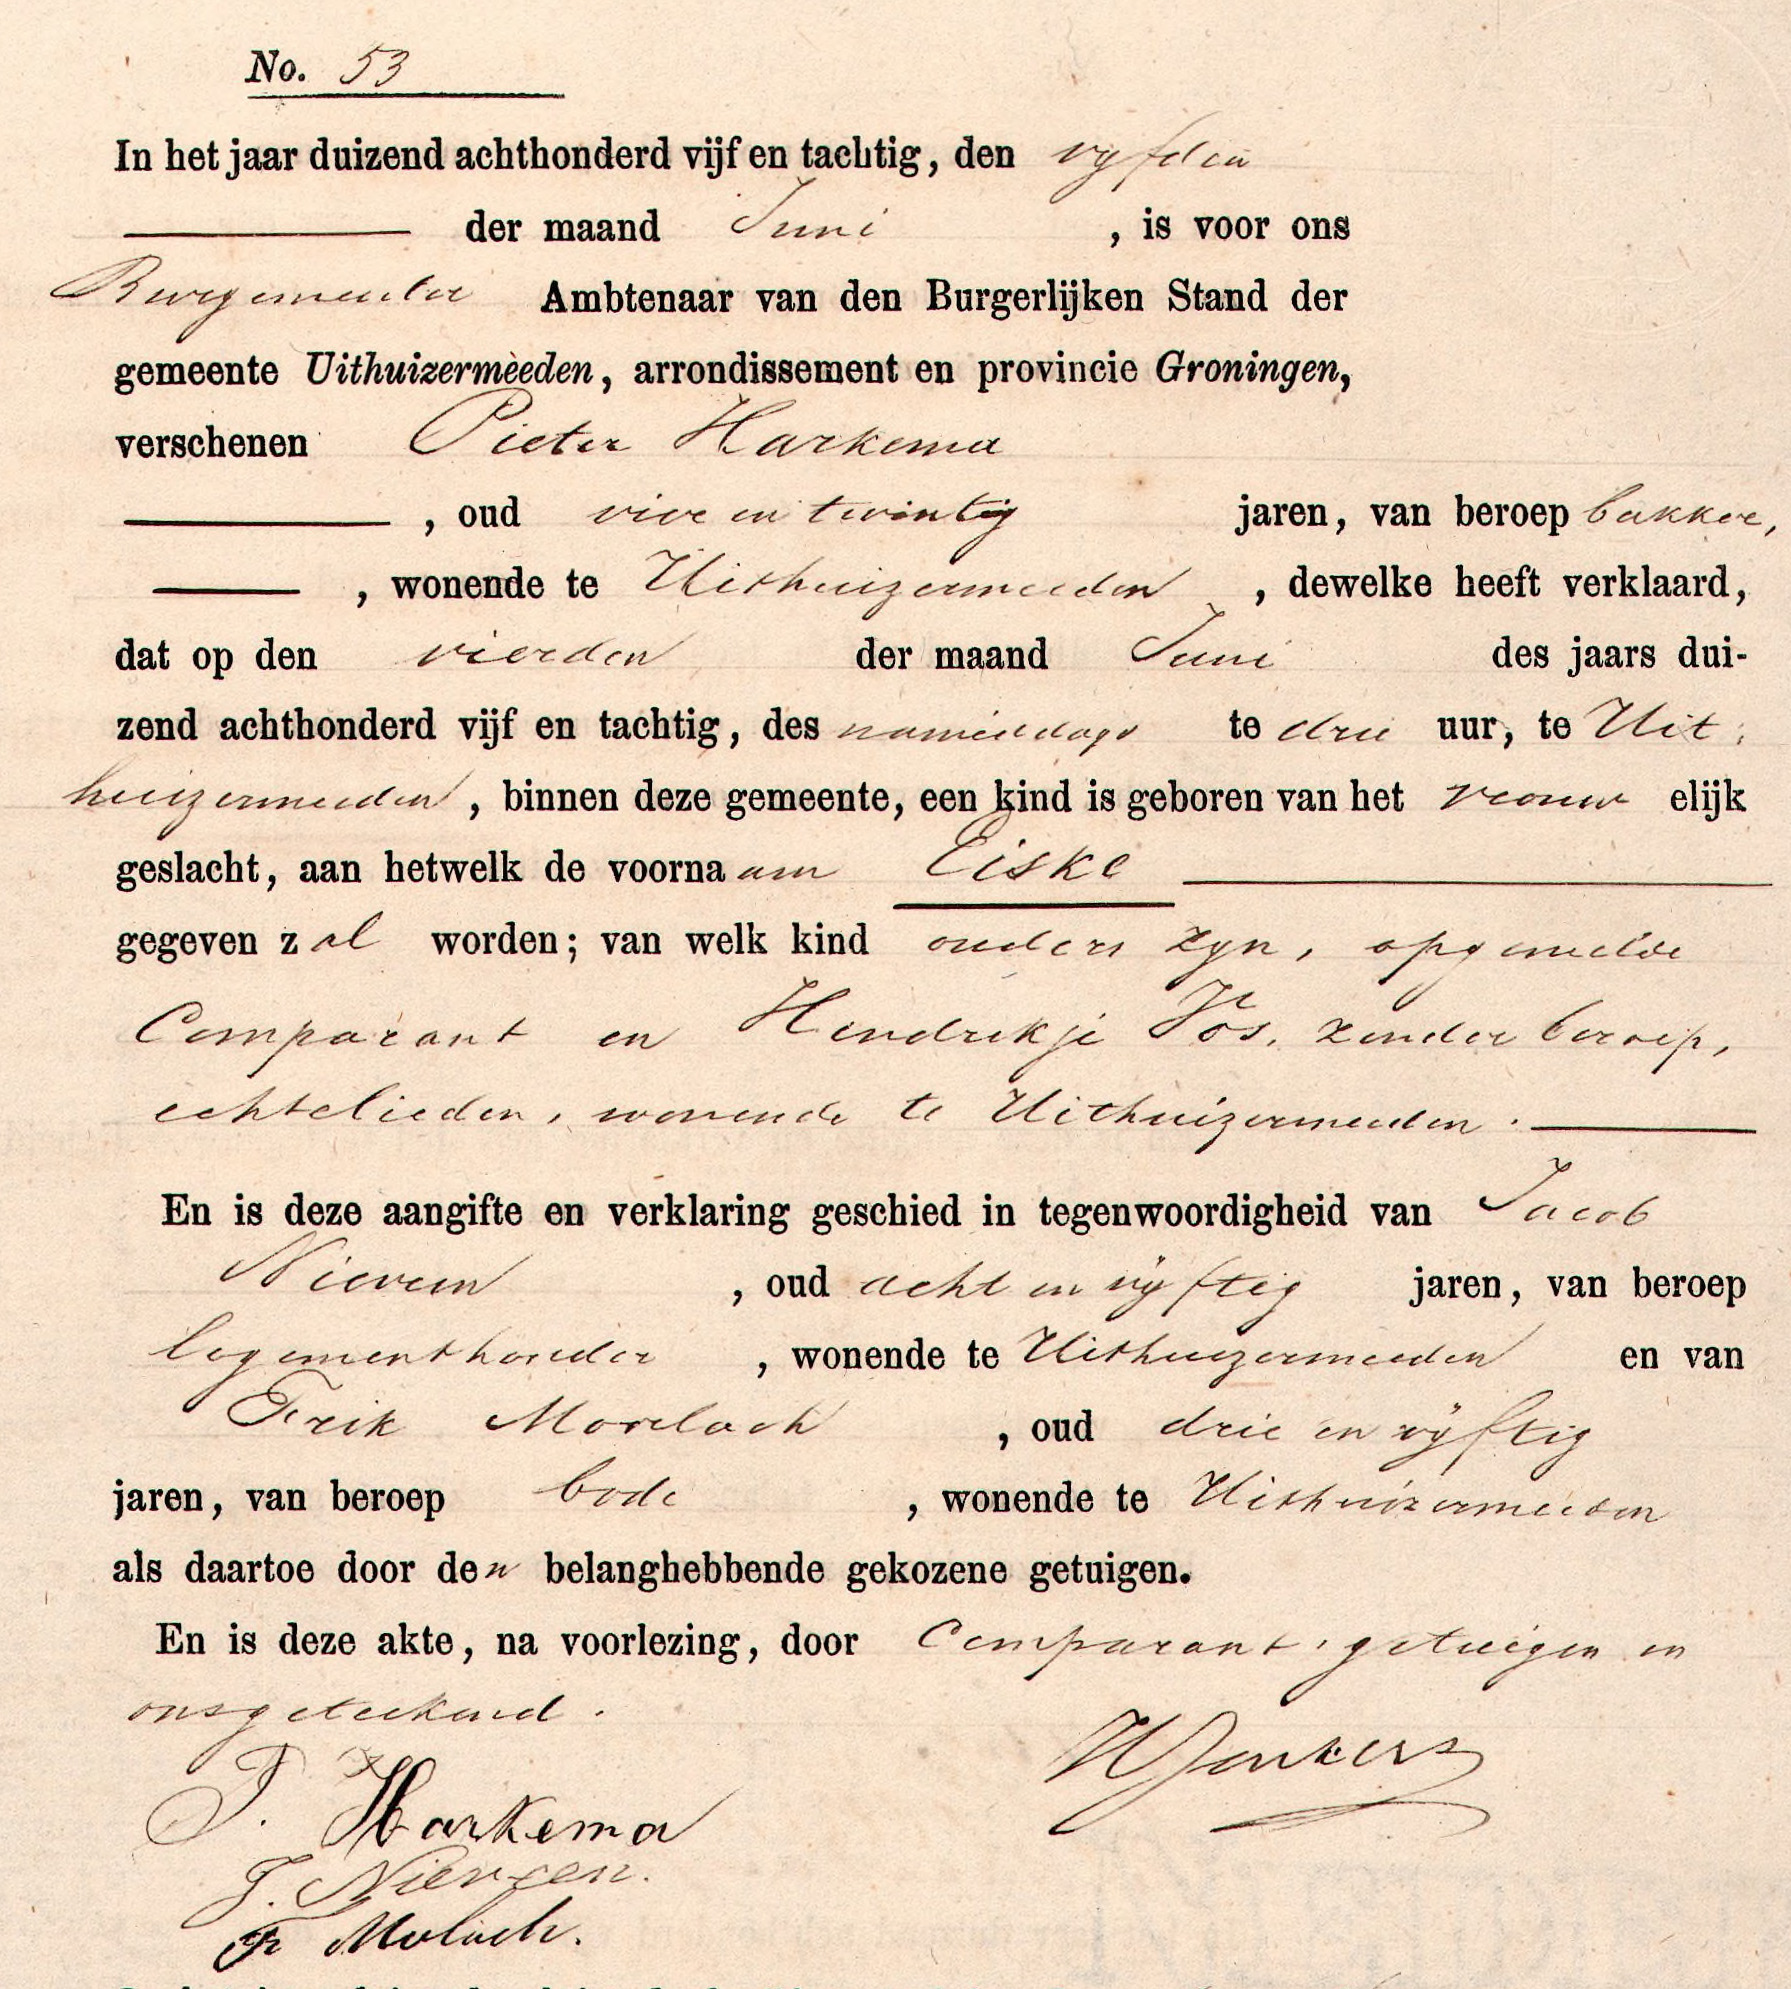 No. 53
In het jaar duizend achthonderd vijf en tachtig, den vyfden
der maand Juni, is voor ons
Burgemeester Ambtenaar van den Burgerlijken Stand der
gemeente Uithuizermeeden, arrondissement en provincie Groningen,
verschenen Pieter Harkema
, oud vier en twintig jaren, van beroep bakker,
, wonende te Uithuizermeeden, dewelke heeft verklaard,
dat op den vierden der maand Juni des jaars dui-
zend achthonderd vijf en tachtig, des namiddags te drie uur, te Uit:
huizermeeden, binnen deze gemeente, een kind is geboren van het vrouw elijk
geslacht, aan hetwelk de voorna am Eiske
gegeven z al worden; van welk kind ouders zyn, opgemelde
Comparant en Hendrikje Vos, zonder beroep,
echtelieden, wonende te Uithuizermeeden.
En is deze aangifte en verklaring geschied in tegenwoordigheid van Jacob
Nieveen, oud acht en vyftig jaren, van beroep
logementhouder, wonende te Uithuizermeeden en van
Frik Moolach, oud drie en vÿftig
jaren, van beroep bode, wonende te Uithuizermeeden
als daartoe door de n belanghebbende gekozene getuigen.
En is deze akte, na voorlezing, door Comparant, getuigen en
ons geteekend.
P. Harkema
J. Nieveen.
Fr Molach.